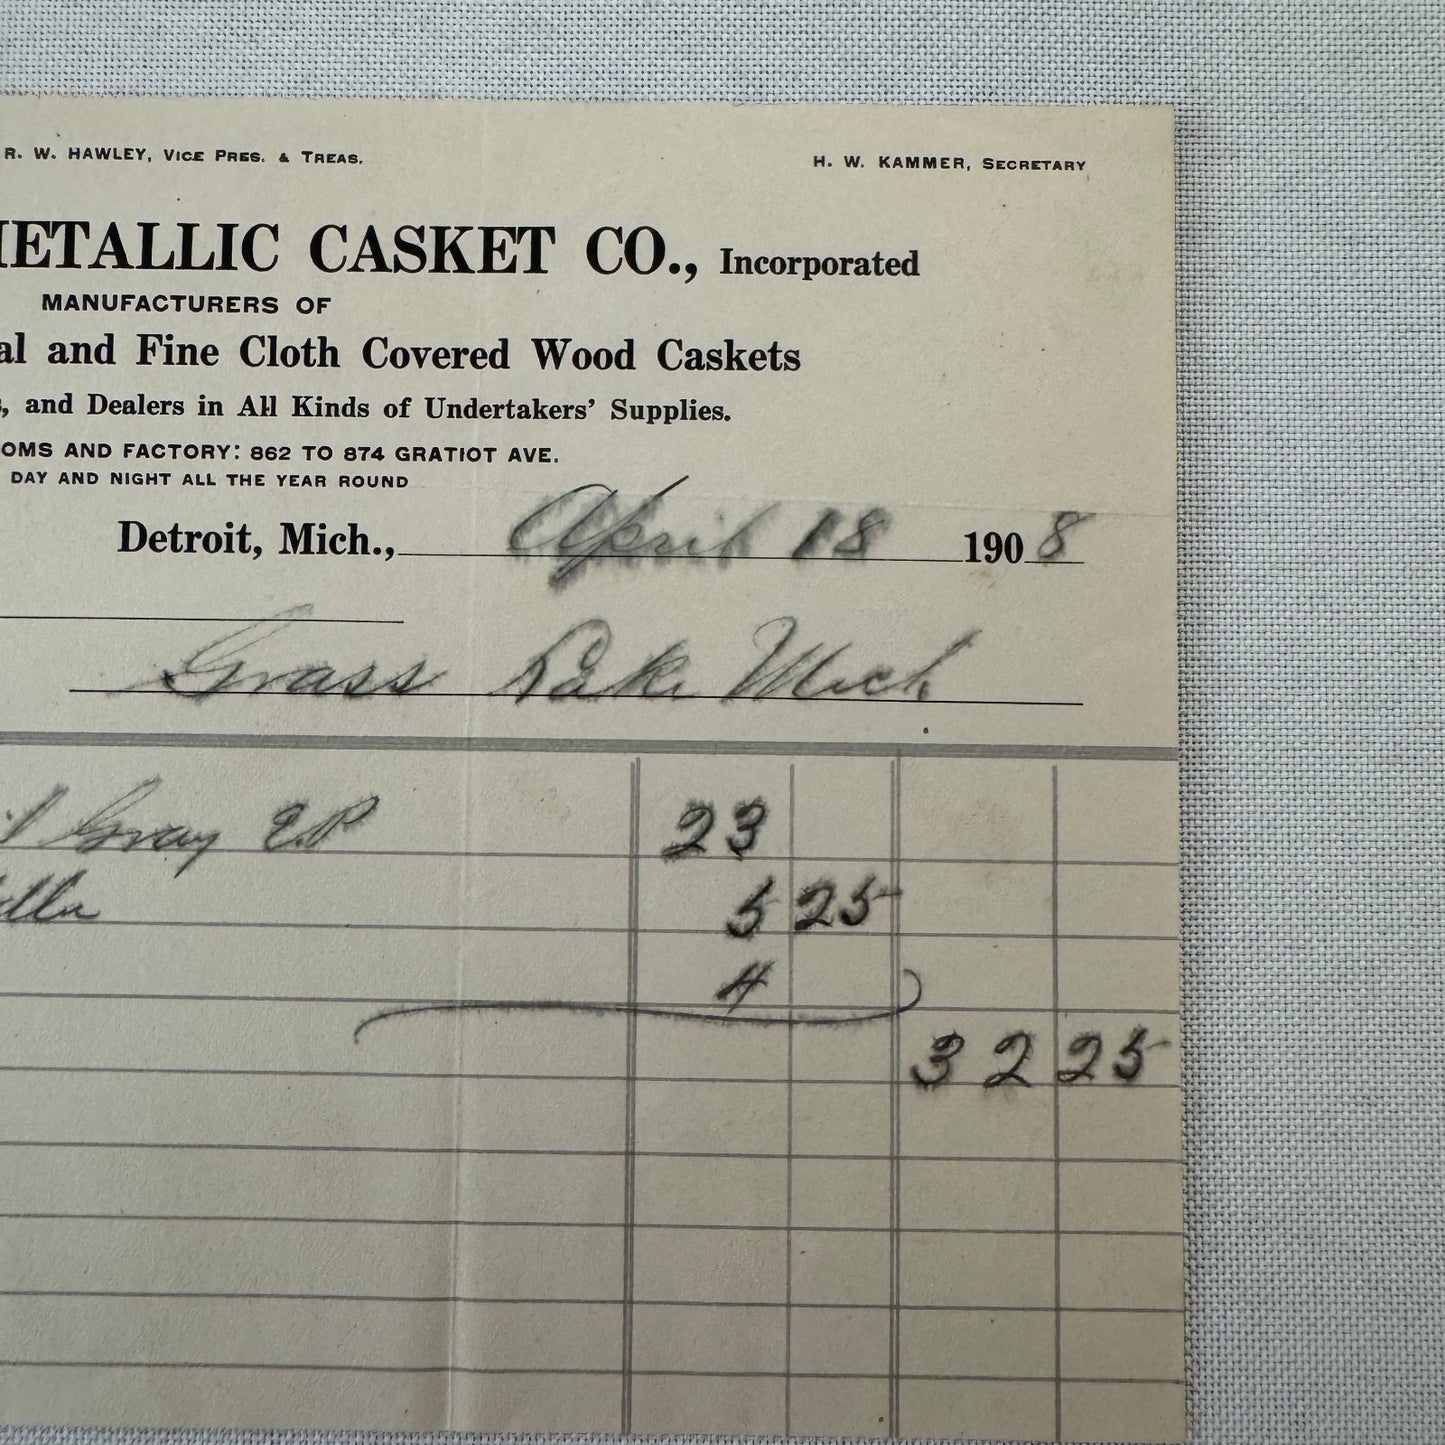 R. W. HAWLEY, VICE PRES. & TREAS. H. W. KAMMER, SECRETARY
METALLIC CASKET CO., Incorporated
MANUFACTURERS OF
al and Fine Cloth Covered Wood Caskets
s, and Dealers in All Kinds of Undertakers' Supplies.
OMS AND FACTORY: 862 TO 874 GRATIOT AVE.
DAY AND NIGHT ALL THE YEAR ROUND
Detroit, Mich., April 18 1908
Grass Lake Mich
Gray E.P 23
5 25
4
32 25